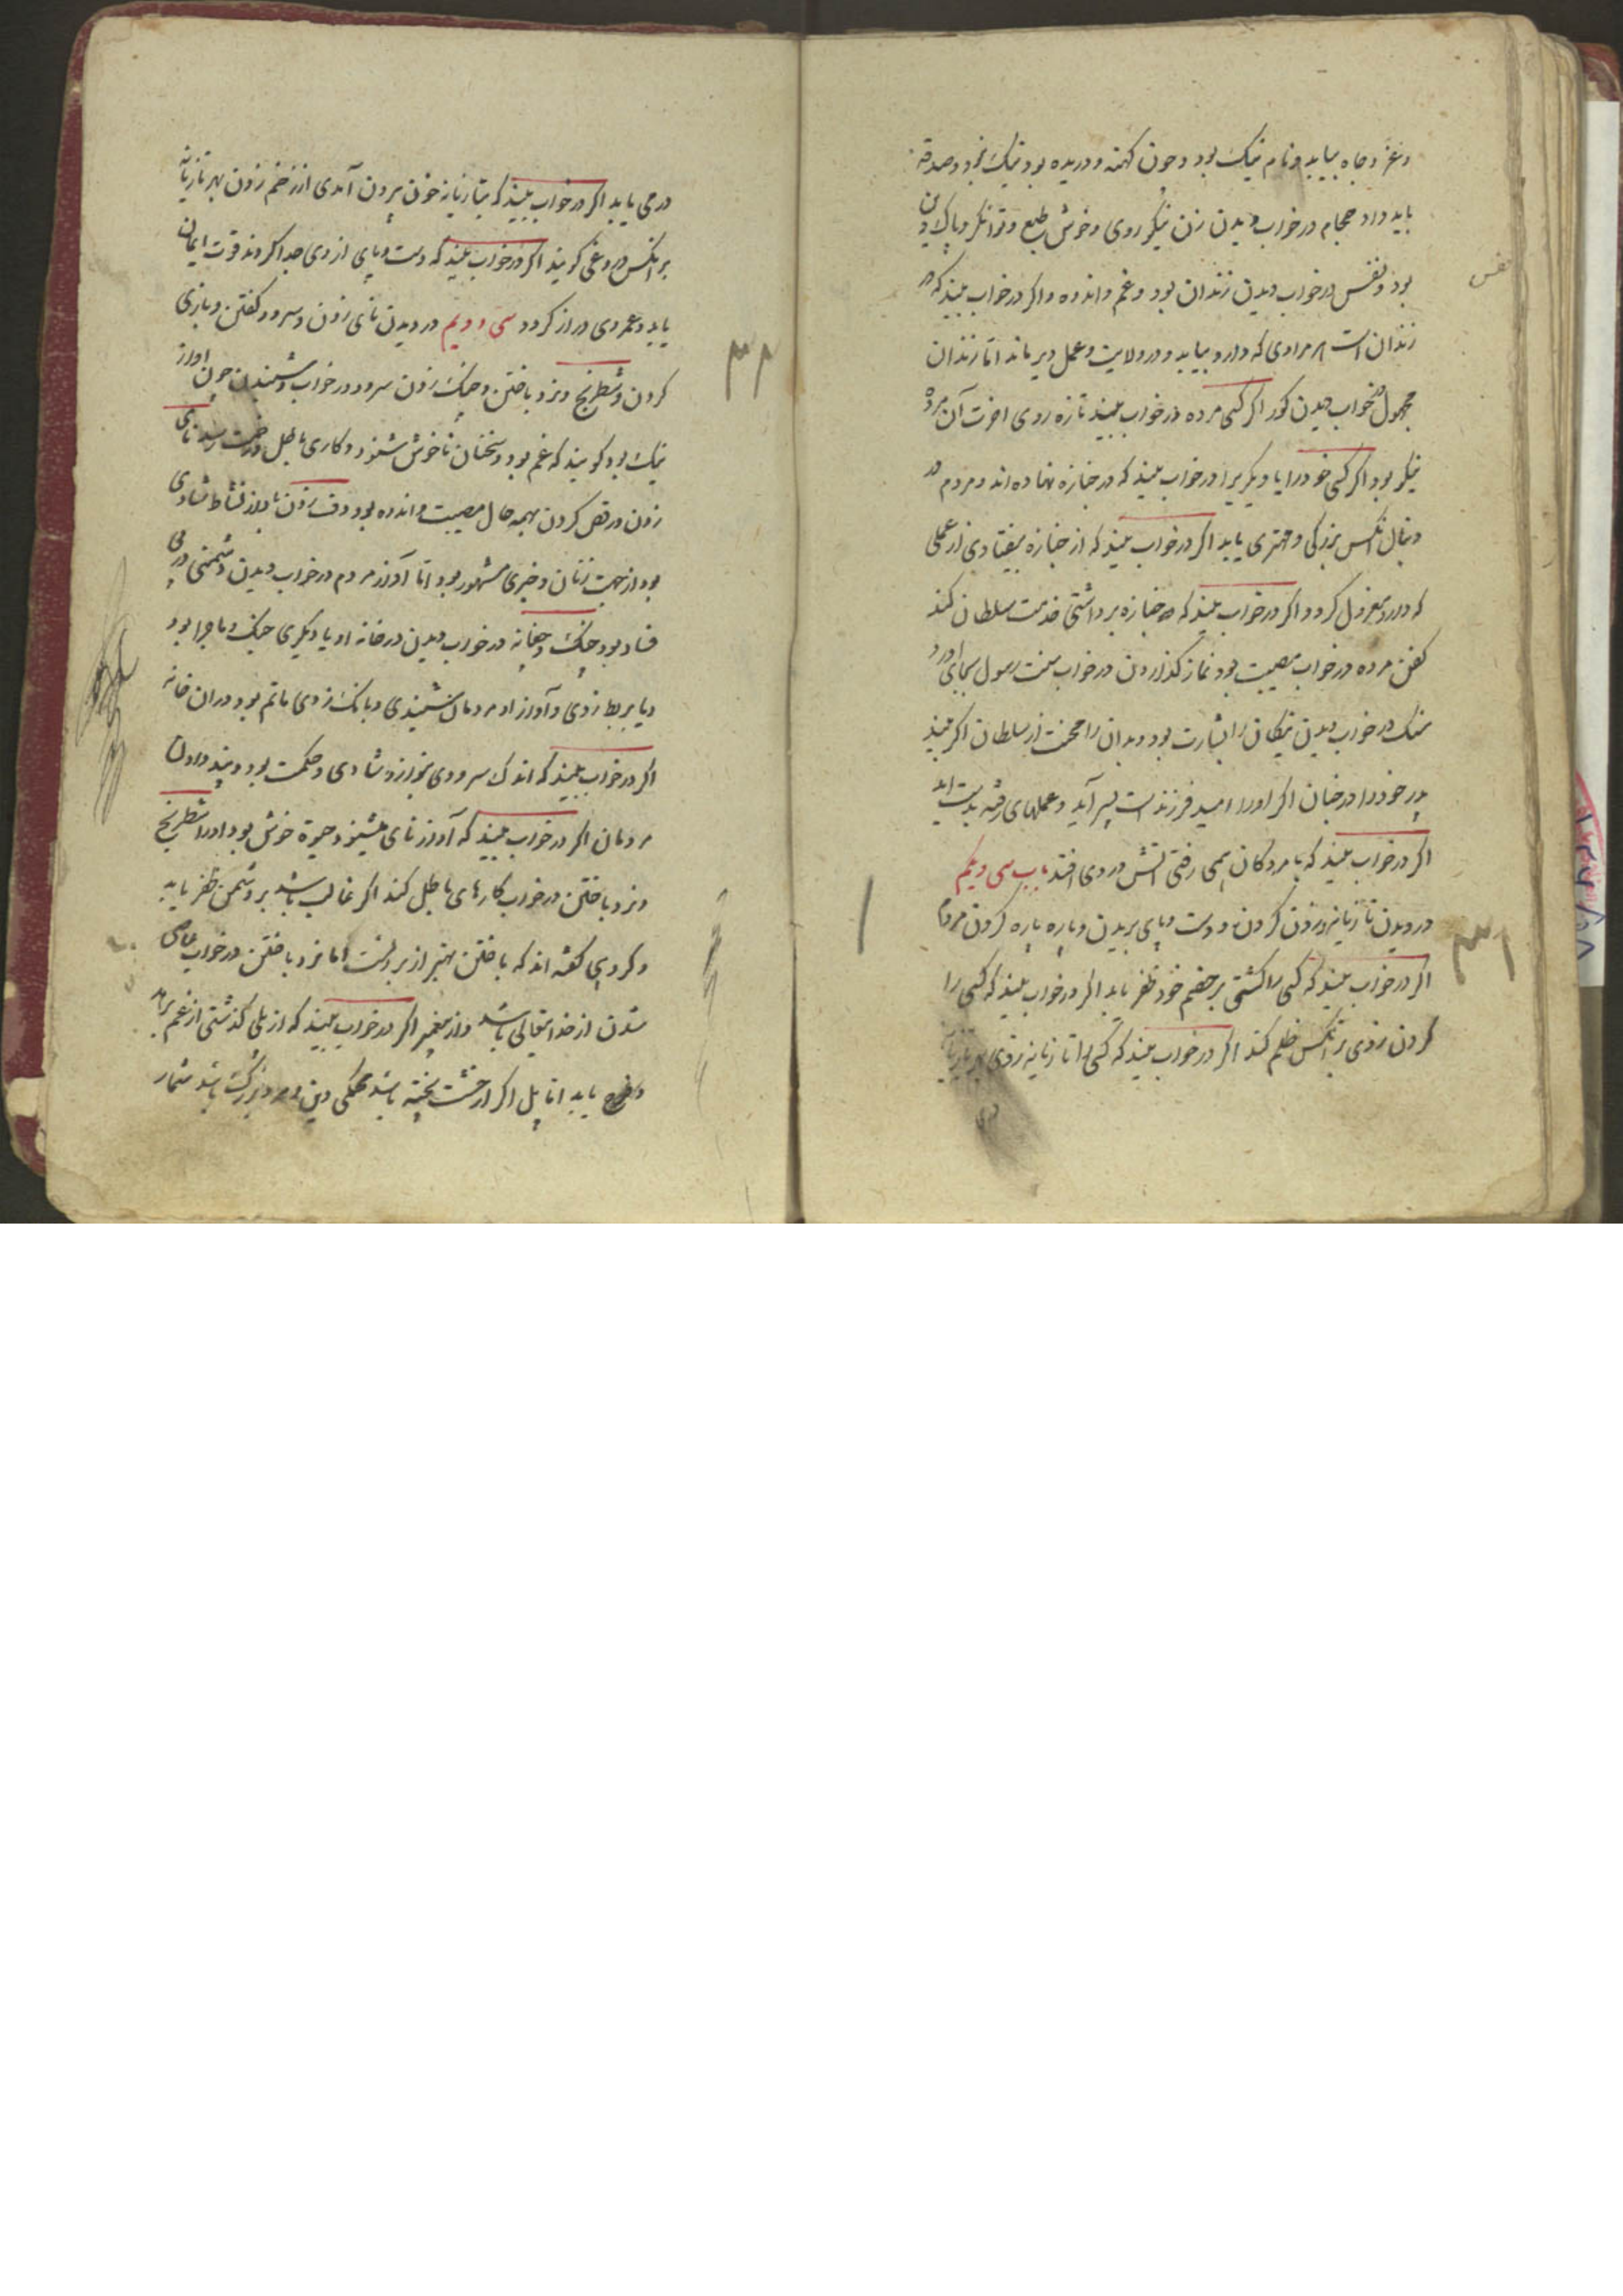 وعز و جاه بیابد و نام نیک بود و چون کهنه و دریده بود نیک نبود و صدقه
باید داد حجام در خواب دیدن زن نیکو روی و خوش طبع و توانگر و پاک دین
بود و نفس در خواب دیدن زندان بود و غم و اندوه و اگر در خواب بیند که در
نفس
زندان است هر مرادی که دارد بیابد و در ولایت و عمل دیر ماند اما زندان
مجهول در خواب دیدن گور اگر کسی مرده در خواب بیند تازه روی اخرت آن مرده
نیکو بود اگر کسی خود را یا دیگریرا در خواب بیند که در جنازه نهاده اند و مردم در
دنبال انکس بزرگی و مهتری یابد اگر در خواب بیند که از جنازه بیفتادی از عملی
که دارد معزول گردد اگر در خواب بیند که جنازه برداشتی خدمت سلطان کند
کفن مرده در خواب مصیبت بود نماز گذاردن در خواب سنت رسول بجای اورد
سنک در خواب دیدن نیکان را بشارت بود و بدان را محنت از سلطان اگر بیند
پدر خود را در خیان اگر اورا امید فرزند است پسر آید و عملهای رفته بدست اید
اگر در خواب بیند که با مردگان همی رفتی اتش در وی افتد باب سی و یکم
در دیدن تازیانه زدن گردن و دست و پای بریدن و پاره پاره کردن مردم
۳۱
اگر در خواب بیند که کسی را کشتی بر خصم خود ظفر یابد اگر در خواب بیند که کسی را
گردن زدی بر انکس ظلم کند اگر در خواب بیند که کسی را تازیانه زدی بهر تازیانه
درمی یابد اگر در خواب بیند که بتازیانه خون بیرون آمدی از زخم زدن بهر تازیانه
بر انکس دروغی گویند اگر در خواب بیند که دست و پای از وی جدا کردند قوت ایمان
یابد و عمر وی دراز گردد سی و دویم در دیدن نای زدن و سرود گفتن و بازی
۳۲
کردن و شطرنج و نرد باختن و چنک زدن سرود در خواب شنیدن چون اواز
نیک بود گویند که غم بود و سخنان ناخوش شنود و کاری باطل نای
زدن و رقص کردن بهمه حال مصیبت و اندوه بود دف زدن نشاط شادی
بود از جهت زنان و خبری مشهور بود اما آواز مردم در خواب دیدن دشمنی در پی
فساد بود چنک و چغانه در خواب دیدن در خانه او یا دیگری جنک و ماجرا بود
و یا بربط زدی و آواز او مردمان شنیدی و بانک زدی ماتم بود در ان خانه
اگر در خواب بیند که اندک سرودی نوازد شادی و حکمت بود و پند دادن
مردمان اگر در خواب بیند که آواز نای میشنود حیوة خوش بود اورا شطرنج
و نرد باختن در خواب کارهای باطل کند اگر غالب باشد بر دشمن ظفر یابد
و گروهی گفته اند که باختن بهتر از بردنست اما نرد باختن در خواب عاصی
شدن از خدایتعالی باشد و از پیغمبر اگر در خواب بیند که از پلی گذشتی از غم برهد
و فرج یابد اما پل اگر از خشت پخته باشد محکمی دین و مرد بزرگ باشد شمار